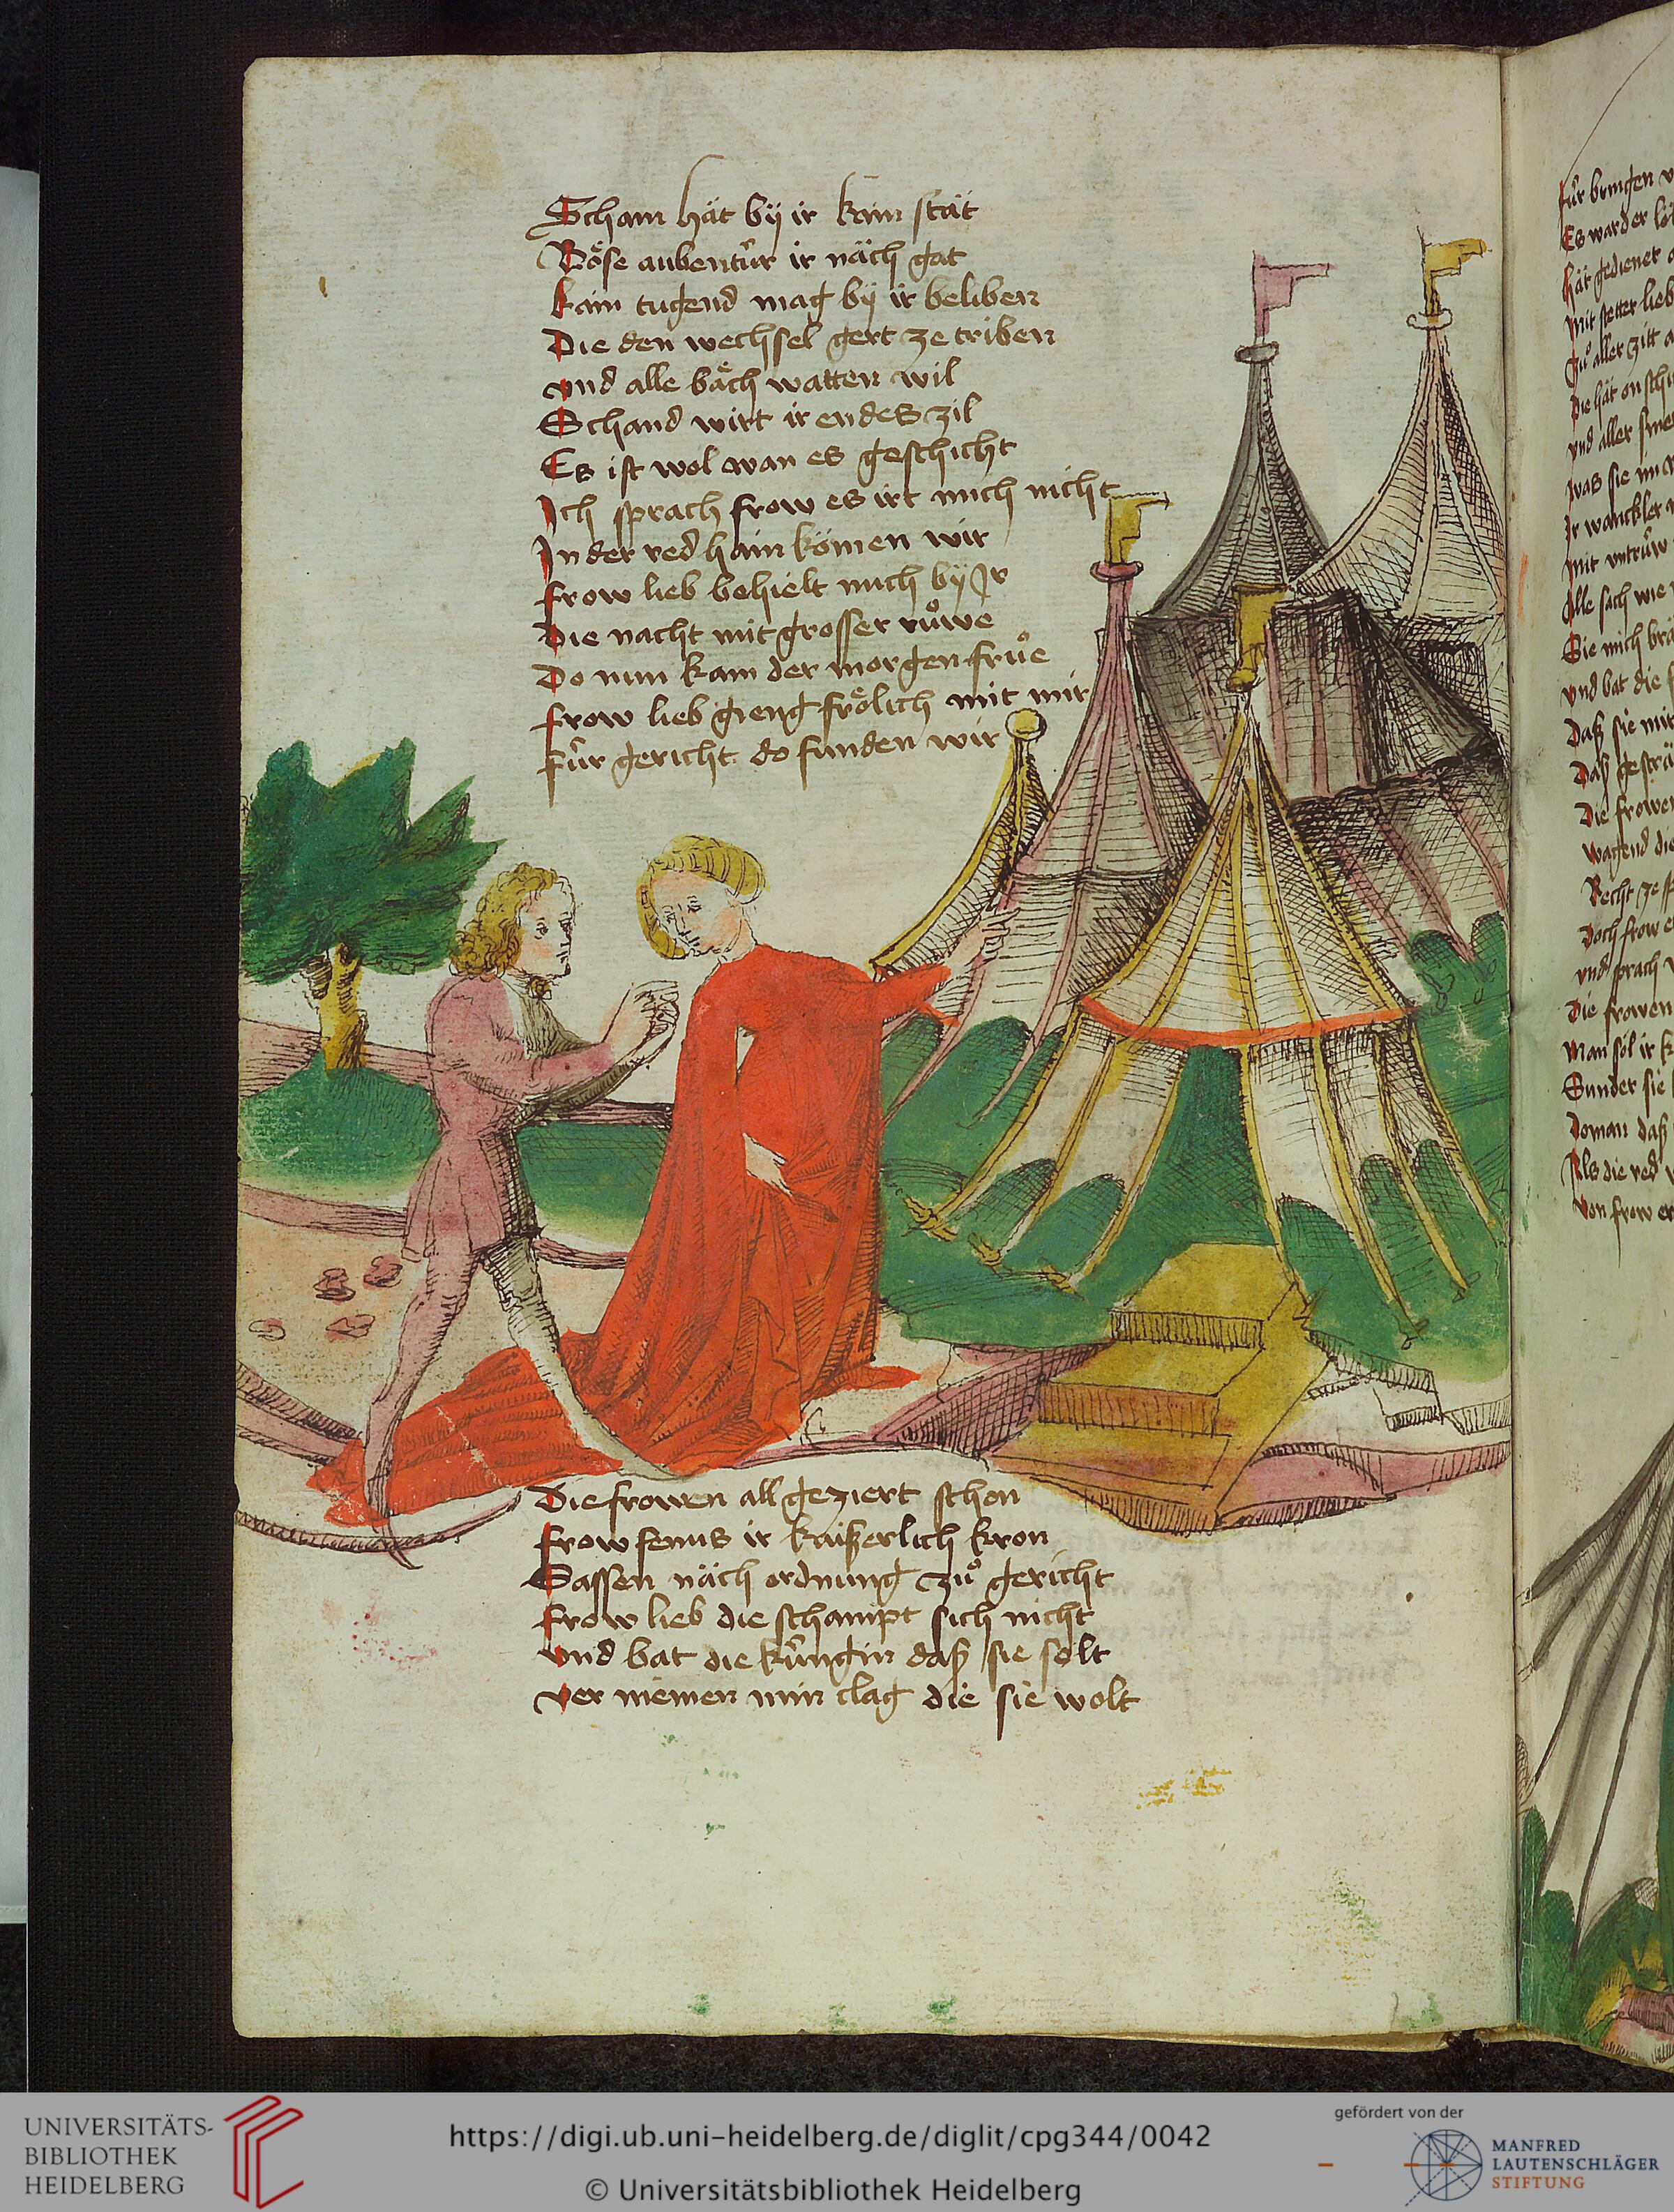 Scham hät bÿ ir kain stät
Böse aubentúr ir näch gat
kain tugend mag bÿ ir beliben
Die den wechsel gert ze triben
vnd alle bäch watten wil
Schand wirt ir endes zil
Es ist wol wan es geschicht
Ich sprach frow es irt mich nicht
In der red hain kömen wir
frow lieb behielt mich bÿ Ir
Die nacht mit grosser růwe
Do nun kam der morgen frůe
frow lieb gieng frölich mit mir
fúr gericht do funden wir
Die frowen all geziert schon
frow fenus ir kaißerlich kron
Sassen näch ordnung zů gericht
frow lieb die schampt sich nicht
vnd bat die kúngin daß sie sölt
ver niemen min clag die sie wolt
fúr bringen
Es ward er
hät gedienet
mit stetter lieb
zů aller zitt
Die hät on
vnd aller
was sie
Ir wanckler
mit vntrúw
Alle sach wie
Sie mich
vnd bat die
Daß sie mir
Daß
Die frowen
wagend die
Recht ze
Doch frow
vnd sprach
Die frowen
Man söl ir
Sunder sie
Doman daß
Als die red
Von frow
UNIVERSITÄTS-
BIBLIOTHEK
HEIDELBERG
https://digi.ub.uni-heidelberg.de/diglit/cpg344/0042
© Universitätsbibliothek Heidelberg
gefördert von der
MANFRED
LAUTENSCHLÄGER
STIFTUNG